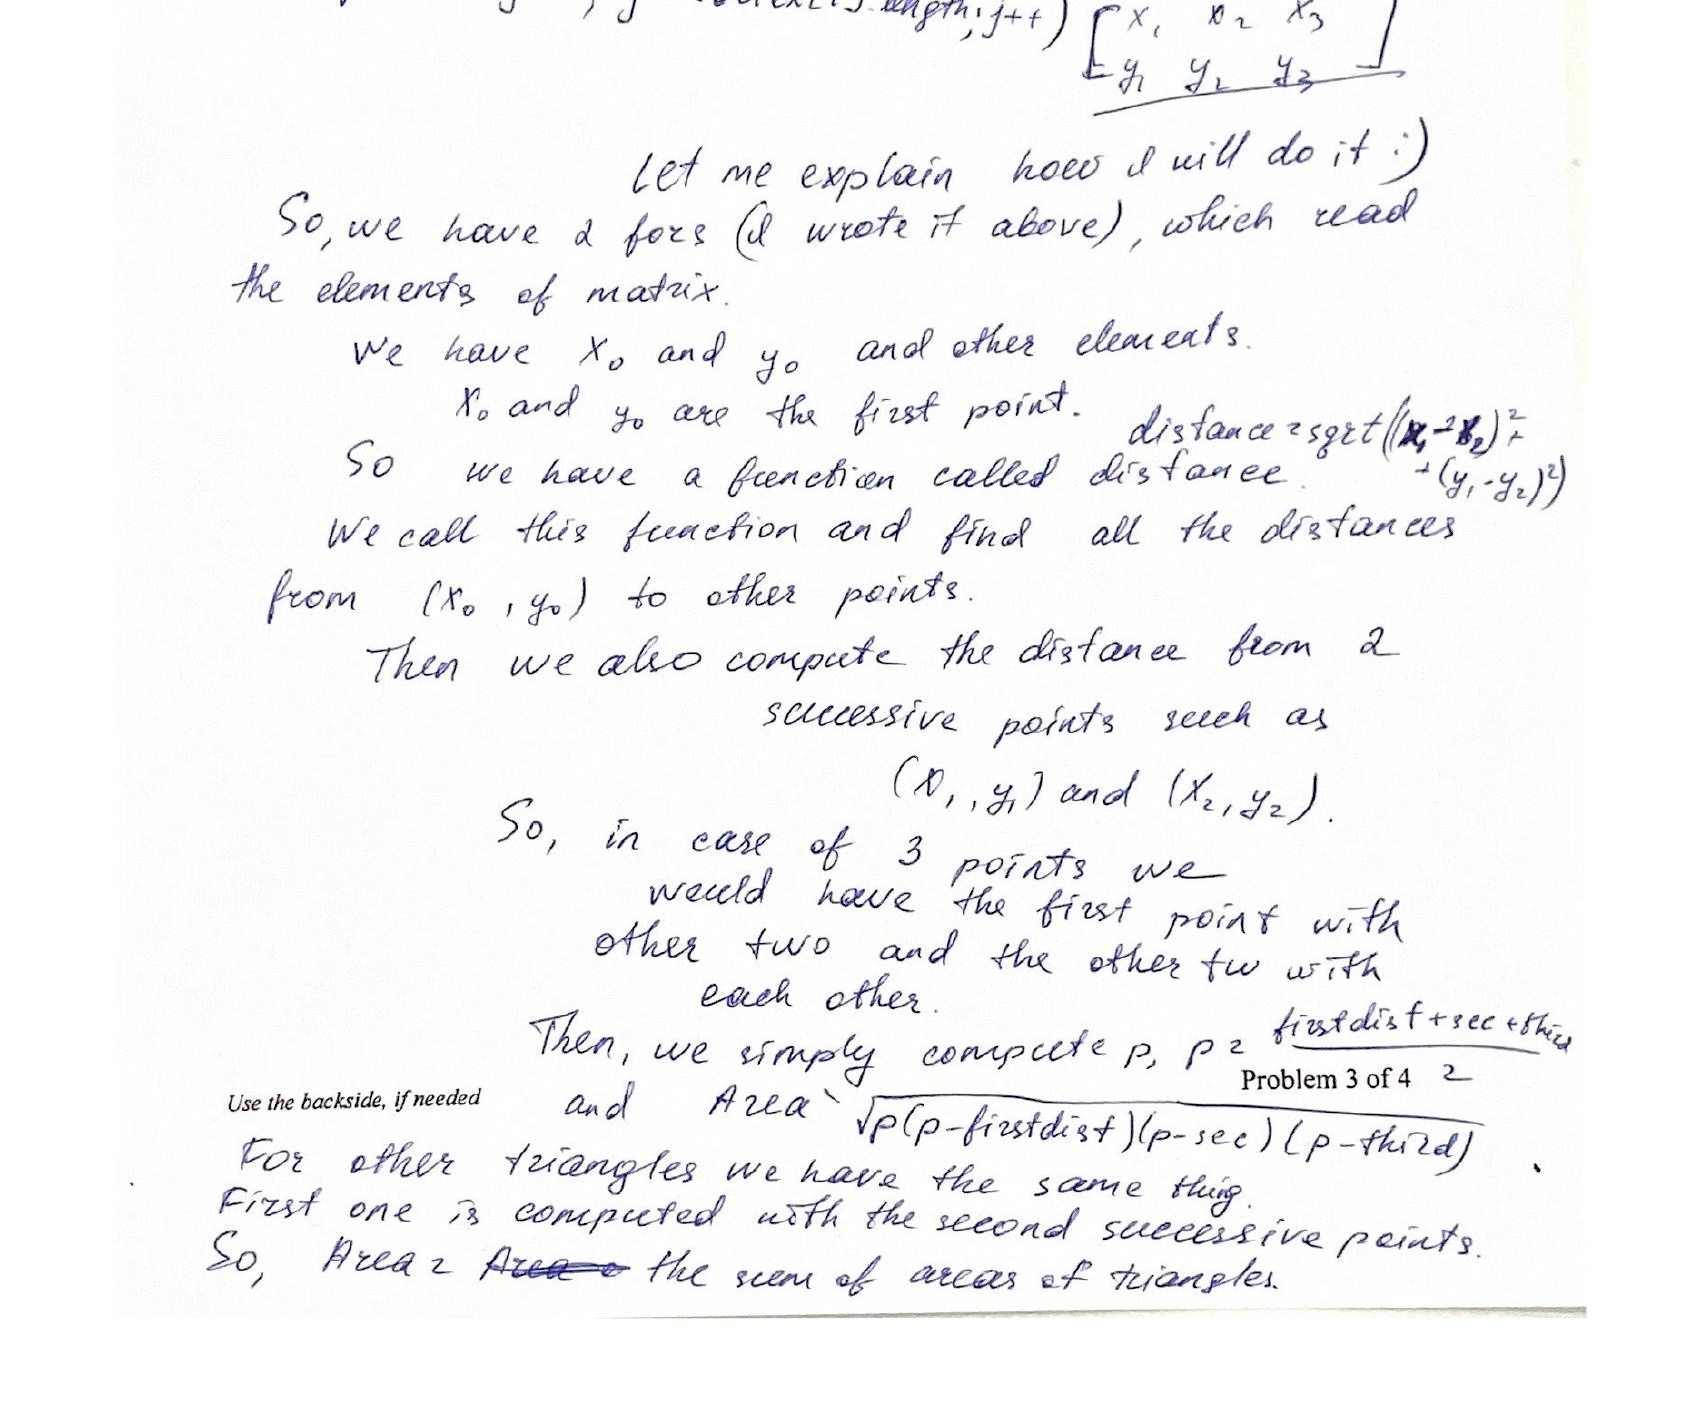 length; j++) [x₁ x₂ x₃
y₁ y₂ y₃]
Let me explain how I will do it :)
So, we have 2 fors (I wrote it above), which read
the elements of matrix.
We have x₀ and y₀ and other elements.
x₀ and y₀ are the first point.
distance = sqrt((x₁-x₂)²+
+(y₁-y₂)²)
So we have a function called distance.
We call this function and find all the distances
from (x₀, y₀) to other points.
Then we also compute the distance from 2
successive points such as
(x₁, y₁) and (x₂, y₂).
So, in case of 3 points we
would have the first point with
other two and the other tw with
each other.
Then, we simply compute p, p = (firstdist + sec + third) / 2
Problem 3 of 4
Use the backside, if needed
and Area √p(p-firstdist)(p-sec)(p-third)
For other triangles we have the same thing.
First one is computed with the second successive points.
So, Area = the sum of areas of triangles.